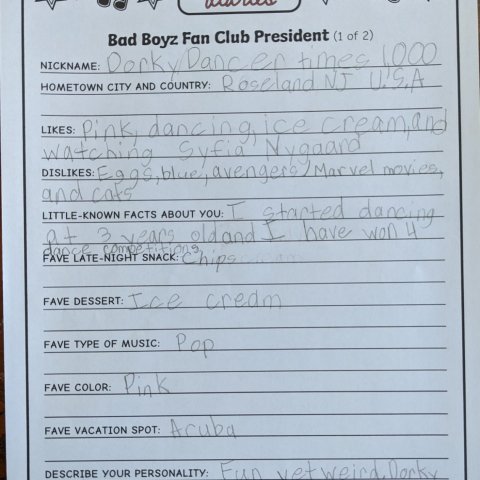 diaries
Bad Boyz Fan Club President (1 of 2)
NICKNAME: Dorky Dancer times 1,000
HOMETOWN CITY AND COUNTRY: Roseland NJ U.S.A
LIKES: Pink, dancing, ice cream, and
watching Syfia Nygaard
DISLIKES: Eggs, blue, avengers/Marvel movies,
and cats
LITTLE-KNOWN FACTS ABOUT YOU: I started dancing
at 3 years old and I have won 4
dance competitions
FAVE LATE-NIGHT SNACK: Chips
FAVE DESSERT: Ice cream
FAVE TYPE OF MUSIC: Pop
FAVE COLOR: Pink
FAVE VACATION SPOT: Acuba
DESCRIBE YOUR PERSONALITY: Fun yet weird, Dorky